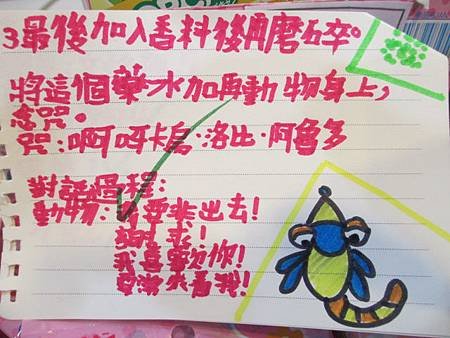 3最後加入香料後再磨碎。
將這個藥水加再動物身上,
念咒。
咒:啊呀卡烏·洛比·阿魯多
對話過程:
動物:要非出去!
求!
我喜歡你!
要常來看我!